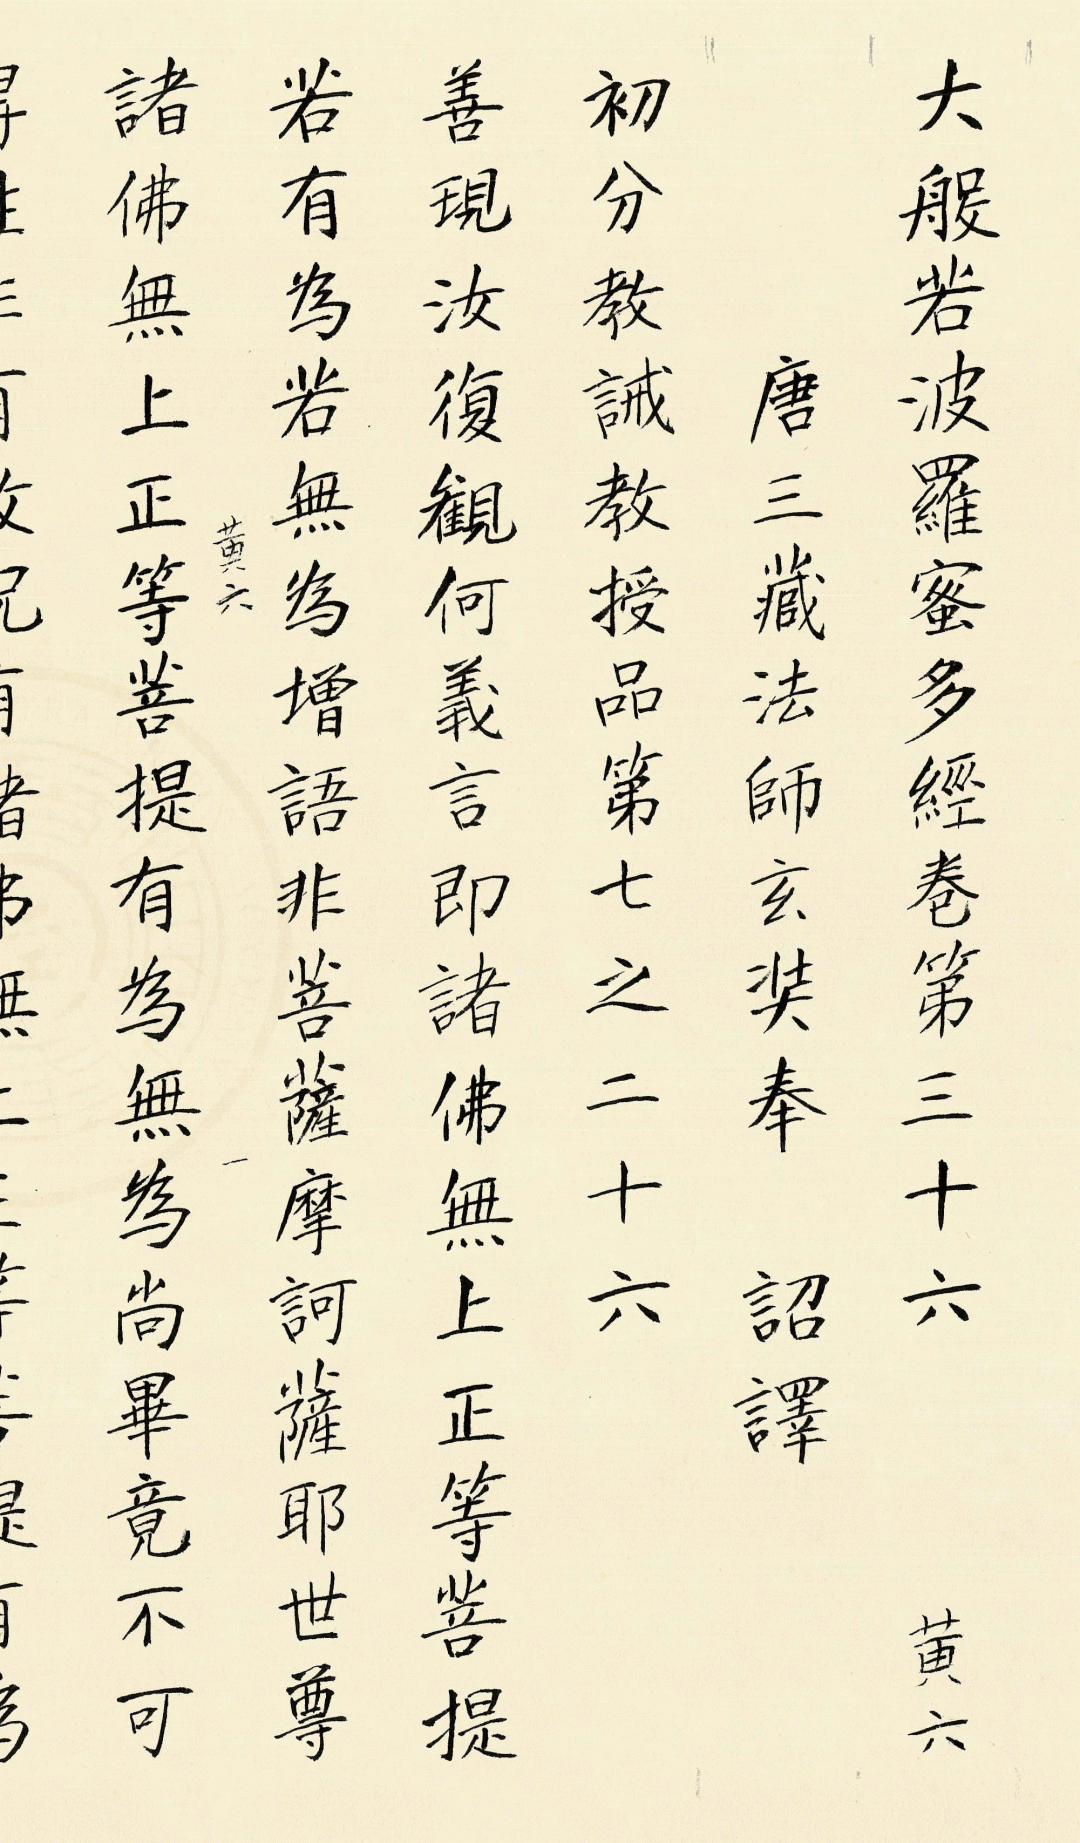 大般若波羅蜜多經卷第三十六 黃六
唐三藏法師玄奘奉 詔譯
初分教誡教授品第七之二十六
善現汝復觀何義言即諸佛無上正等菩提
若有為若無為增語非菩薩摩訶薩耶世尊
黃六 一
諸佛無上正等菩提有為無為尚畢竟不可